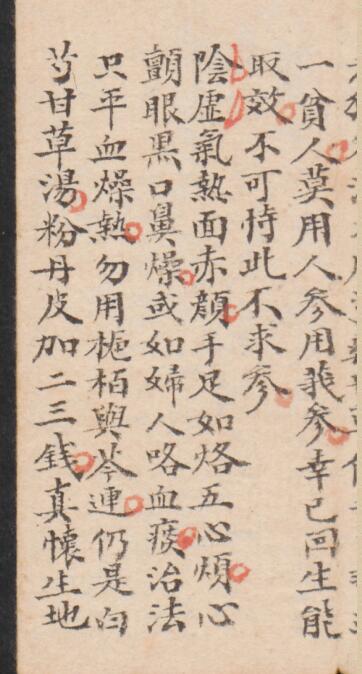 一貧人莫用人參用莪參幸已回生能
取效不可恃此不求參
陰虛氣熱面赤顔手足如烙五心煩心
顫眼黒口鼻燥或如婦人咯血痰治法
只平血燥熱勿用梔栢與芩連仍是白
芍甘草湯粉丹皮加二三錢真懷生地